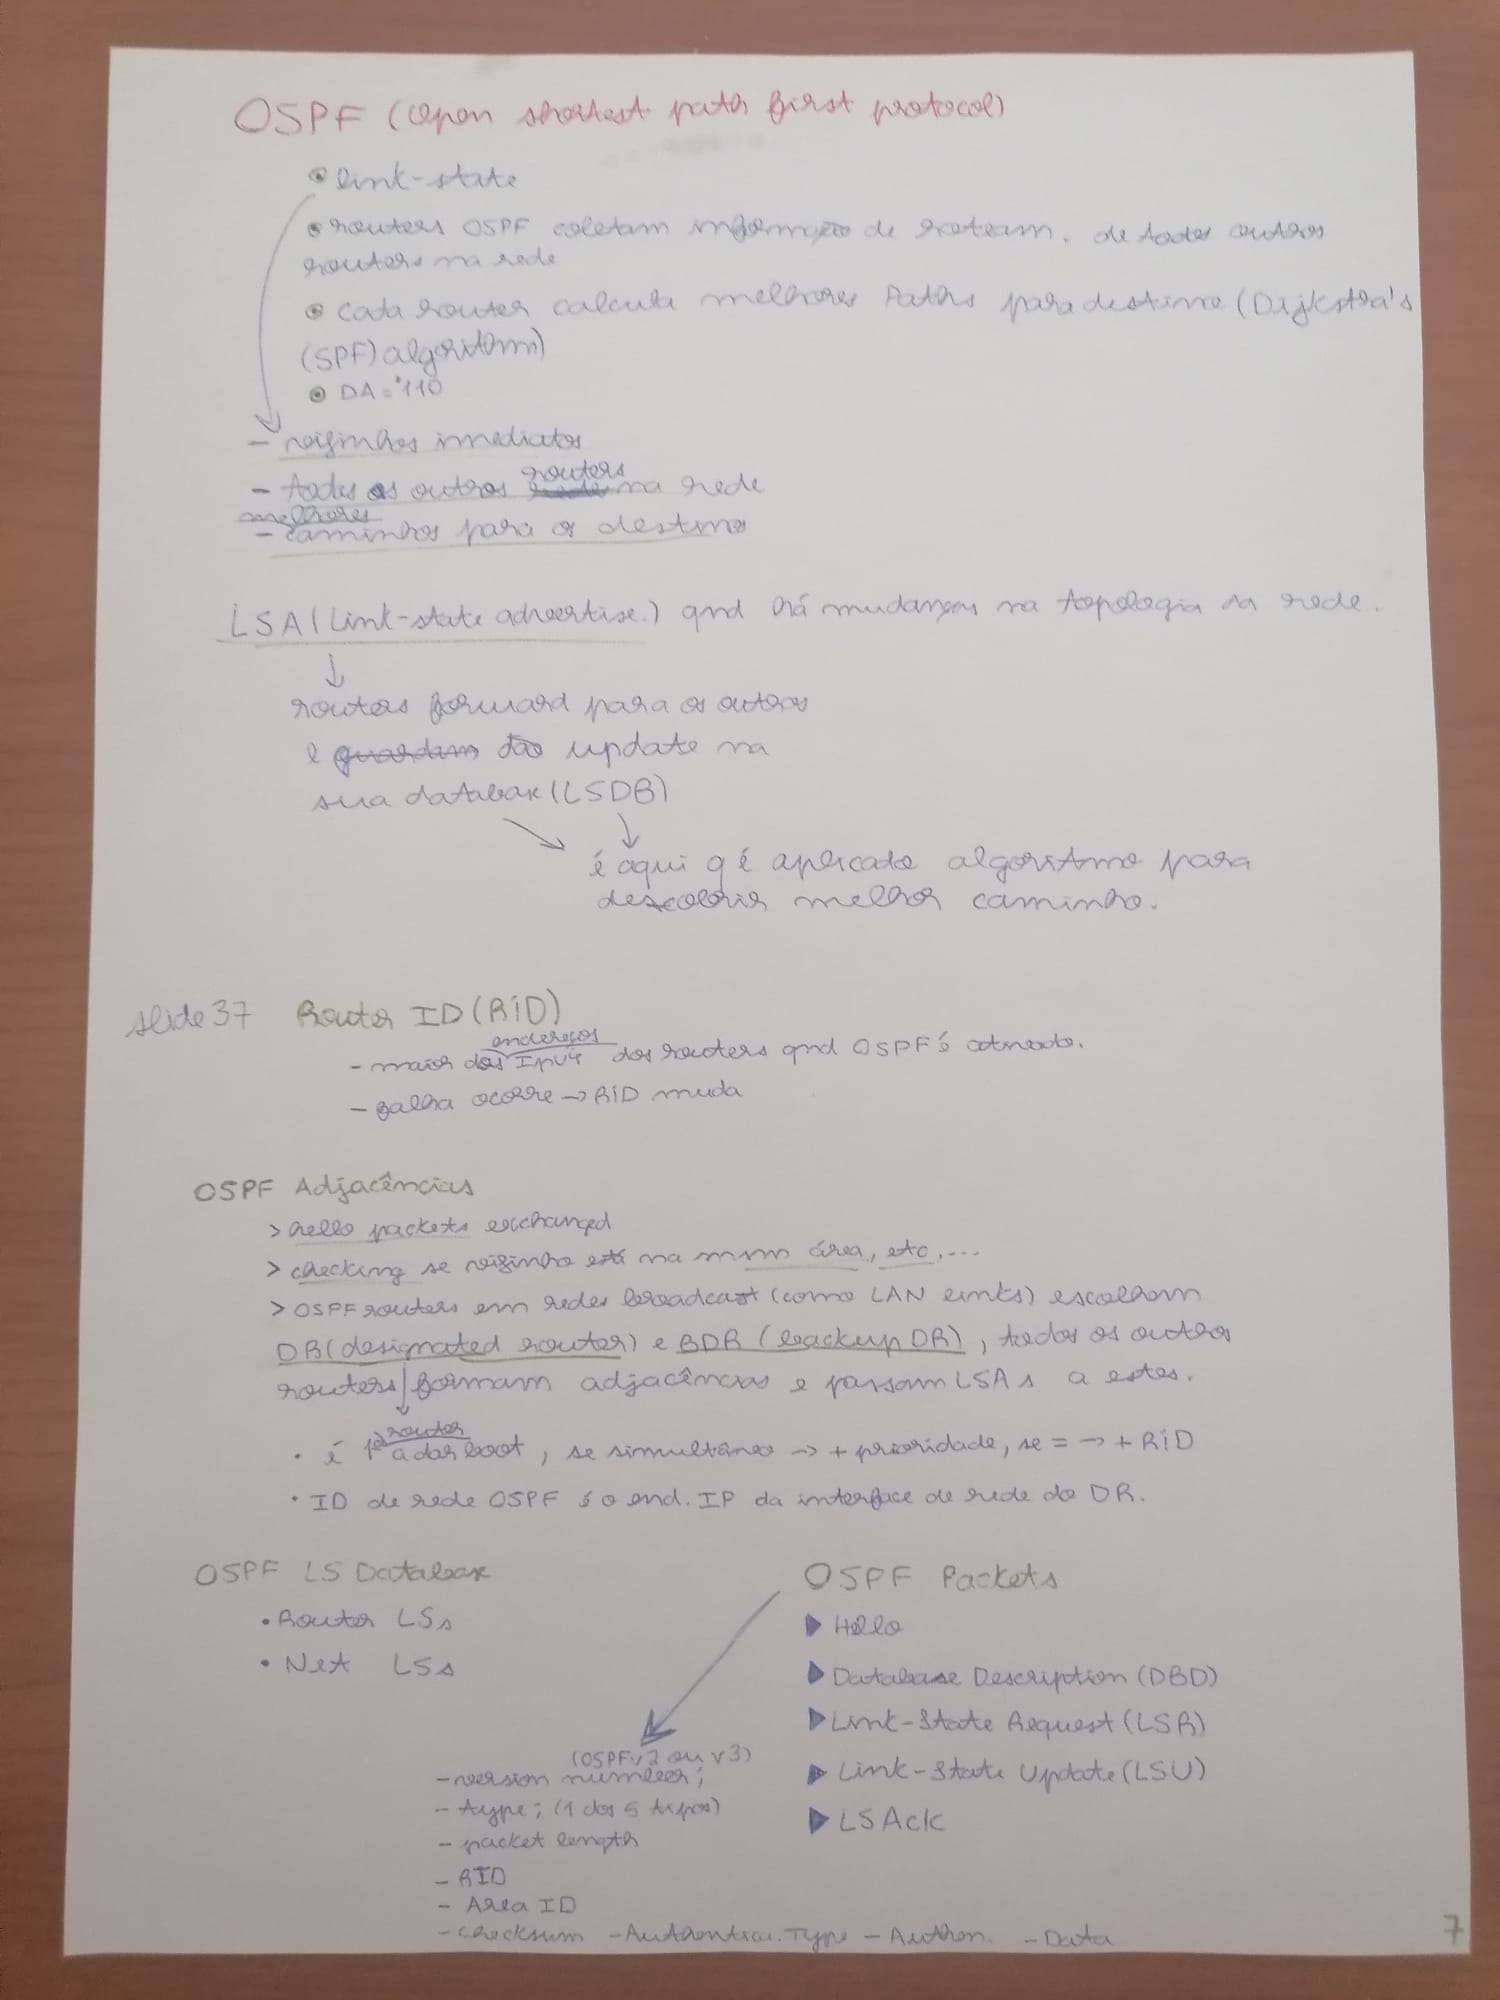 OSPF (Open shortest path first protocol)
link-state
routers OSPF coletam informação de roteam. de todos outros
routers na rede
cada router calcula melhores Paths para destino (Dijkstra's
(SPF) algorithm)
DA = 110
- vizinhos imediatos
routers
- todos os outros na rede
melhores
- caminhos para os destino
LSA (Link-state advertise.) qnd há mudanças na topologia da rede.
routers forward para os outros
e guardam dão update na
sua database (LSDB)
é aqui q é aplicado algoritmo para
descobrir melhor caminho.
slide 37 Router ID (RID)
endereços
- maior dos IPv4 dos routers qnd OSPF é ativado.
- falha ocorre → RID muda
OSPF Adjacências
> hello packets exchanged
> checking se vizinho está na msm área, etc, ...
> OSPF routers em redes broadcast (como LAN links) escolhem
DR (designated router) e BDR (backup DR), todos os outros
routers formam adjacências e passam LSAs a estes.
router
• é 1º a dar boot, se simultâneo → + prioridade, se = → + RID
• ID de rede OSPF é o end. IP da interface de rede do DR.
OSPF LS Database
• Router LSs
• Net LSs
OSPF Packets
Hello
Database Description (DBD)
Link-State Request (LSR)
Link-State Update (LSU)
LSAck
(OSPFv2 ou v3)
- version number;
- type; (1 dos 5 tipos)
- packet length
- RID
- Area ID
- checksum - Authentica. Type - Authen. - Data
7